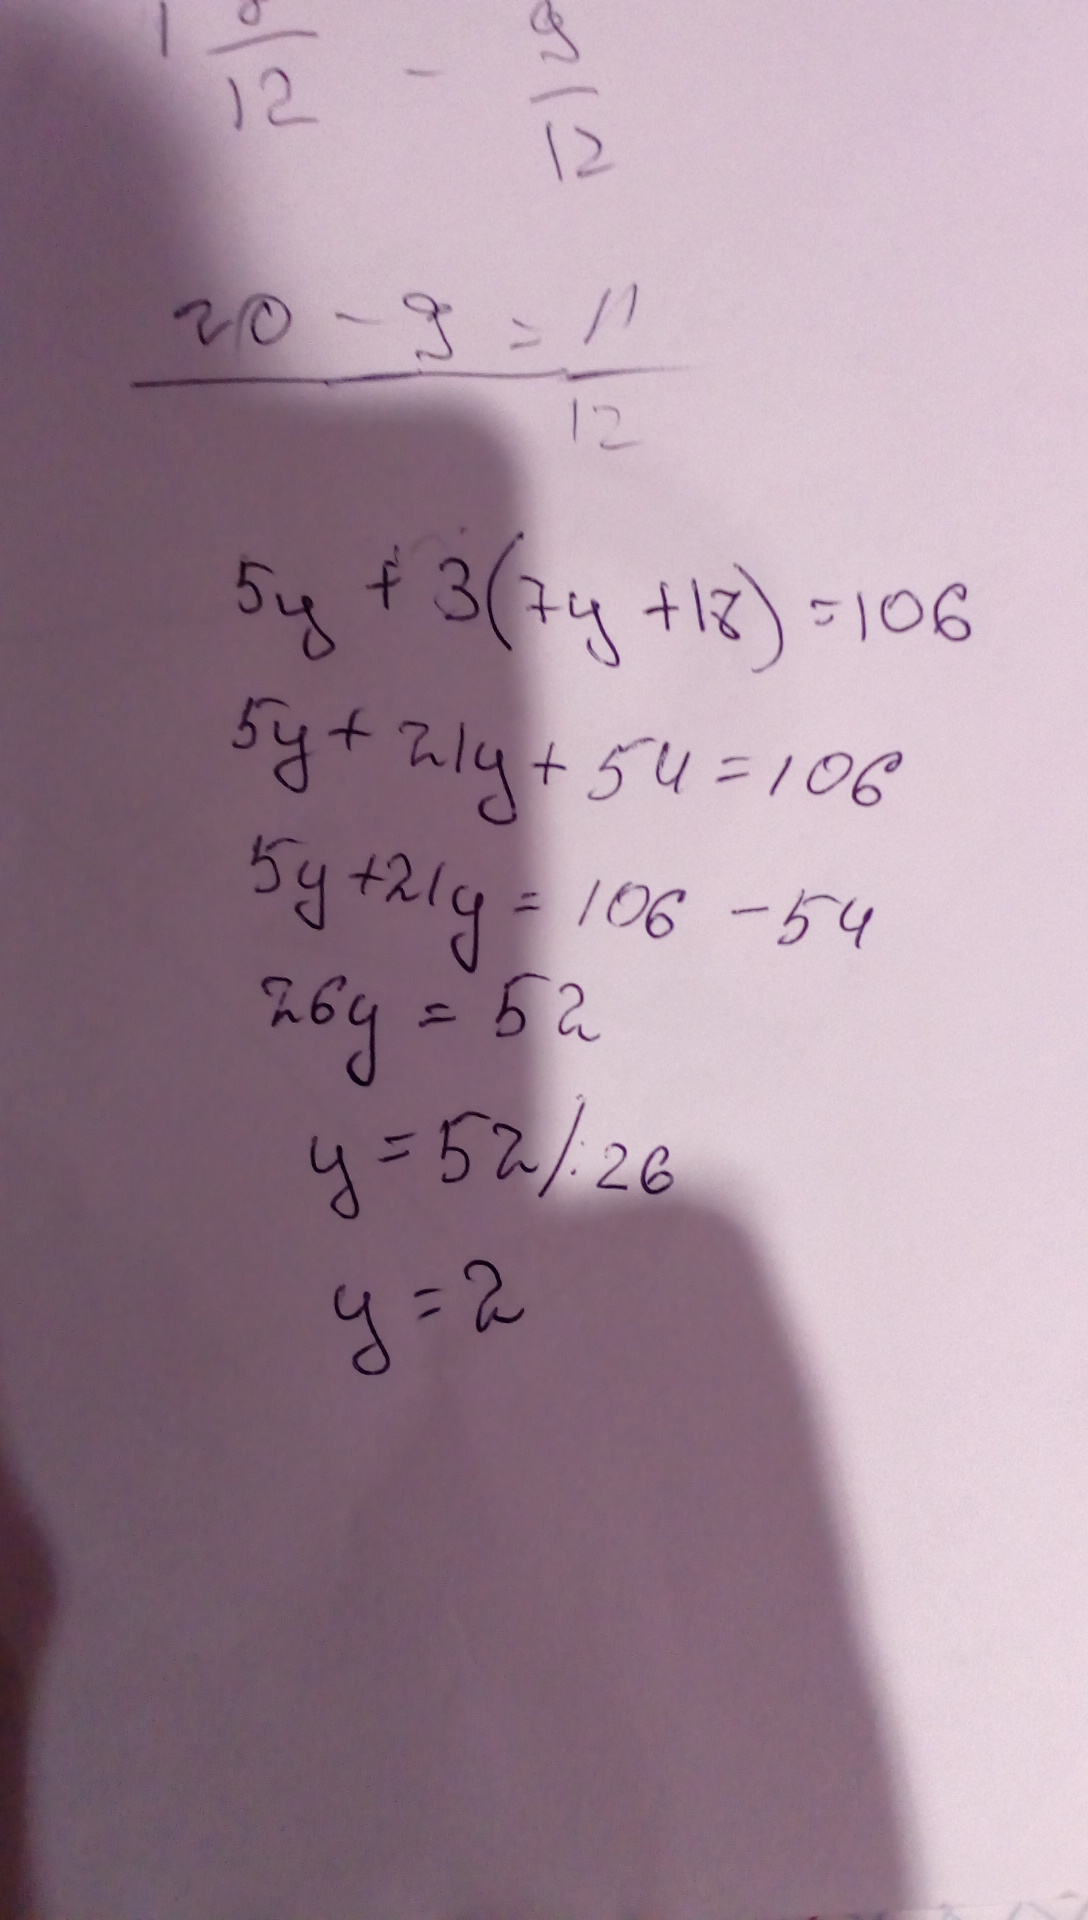 1 8/12 - 9/12
20 - 9 = 11
12
5y + 3(7y + 18) = 106
5y + 21y + 54 = 106
5y + 21y = 106 - 54
26y = 52
y = 52/:26
y = 2